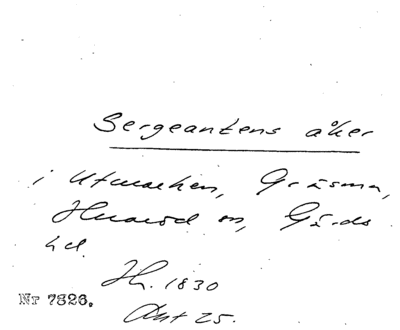 Sergeantens åker
i Utmarken, Gräsma,
Huaröd sn, Gärds
hd.
Jh. 1830
Akt 25.
Nr 7326.